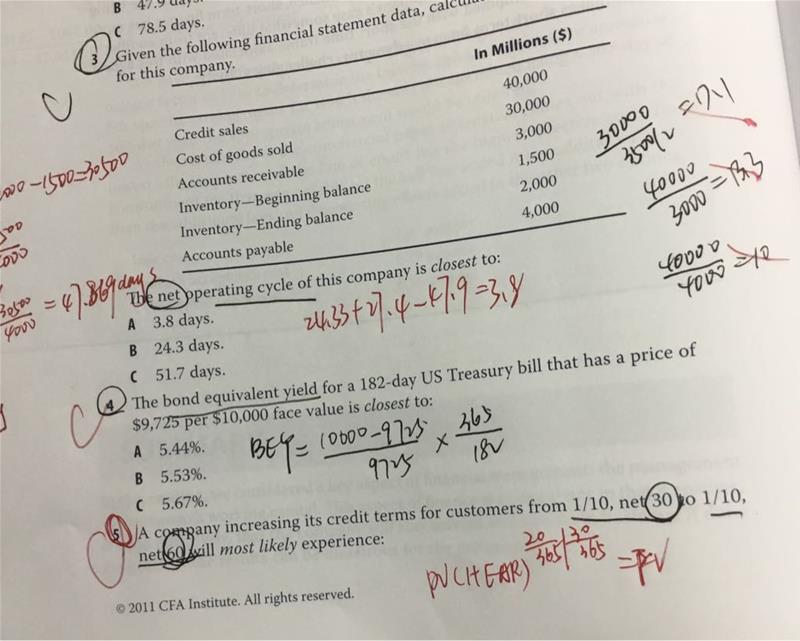 B 47.9 days.
C 78.5 days.
3 Given the following financial statement data,
for this company.
In Millions ($)
Credit sales 40,000
Cost of goods sold 30,000
Accounts receivable 3,000
Inventory—Beginning balance 1,500
Inventory—Ending balance 2,000
Accounts payable 4,000
-1500=30500
30500/4000 = 47.869 days
30000/3500/2 = 17.1
40000/3000 = 13.3
40000/4000 = 10
The net operating cycle of this company is closest to:
24.33+27.4-47.9=3.8
A 3.8 days.
B 24.3 days.
C 51.7 days.
4 The bond equivalent yield for a 182-day US Treasury bill that has a price of
$9,725 per $10,000 face value is closest to:
A 5.44%.
B 5.53%.
C 5.67%.
BEY = 10000-9725/9725 × 365/182
5 A company increasing its credit terms for customers from 1/10, net 30 to 1/10,
net 60 will most likely experience:
PV(1+EAR) 20/365 30/365 = FV
© 2011 CFA Institute. All rights reserved.